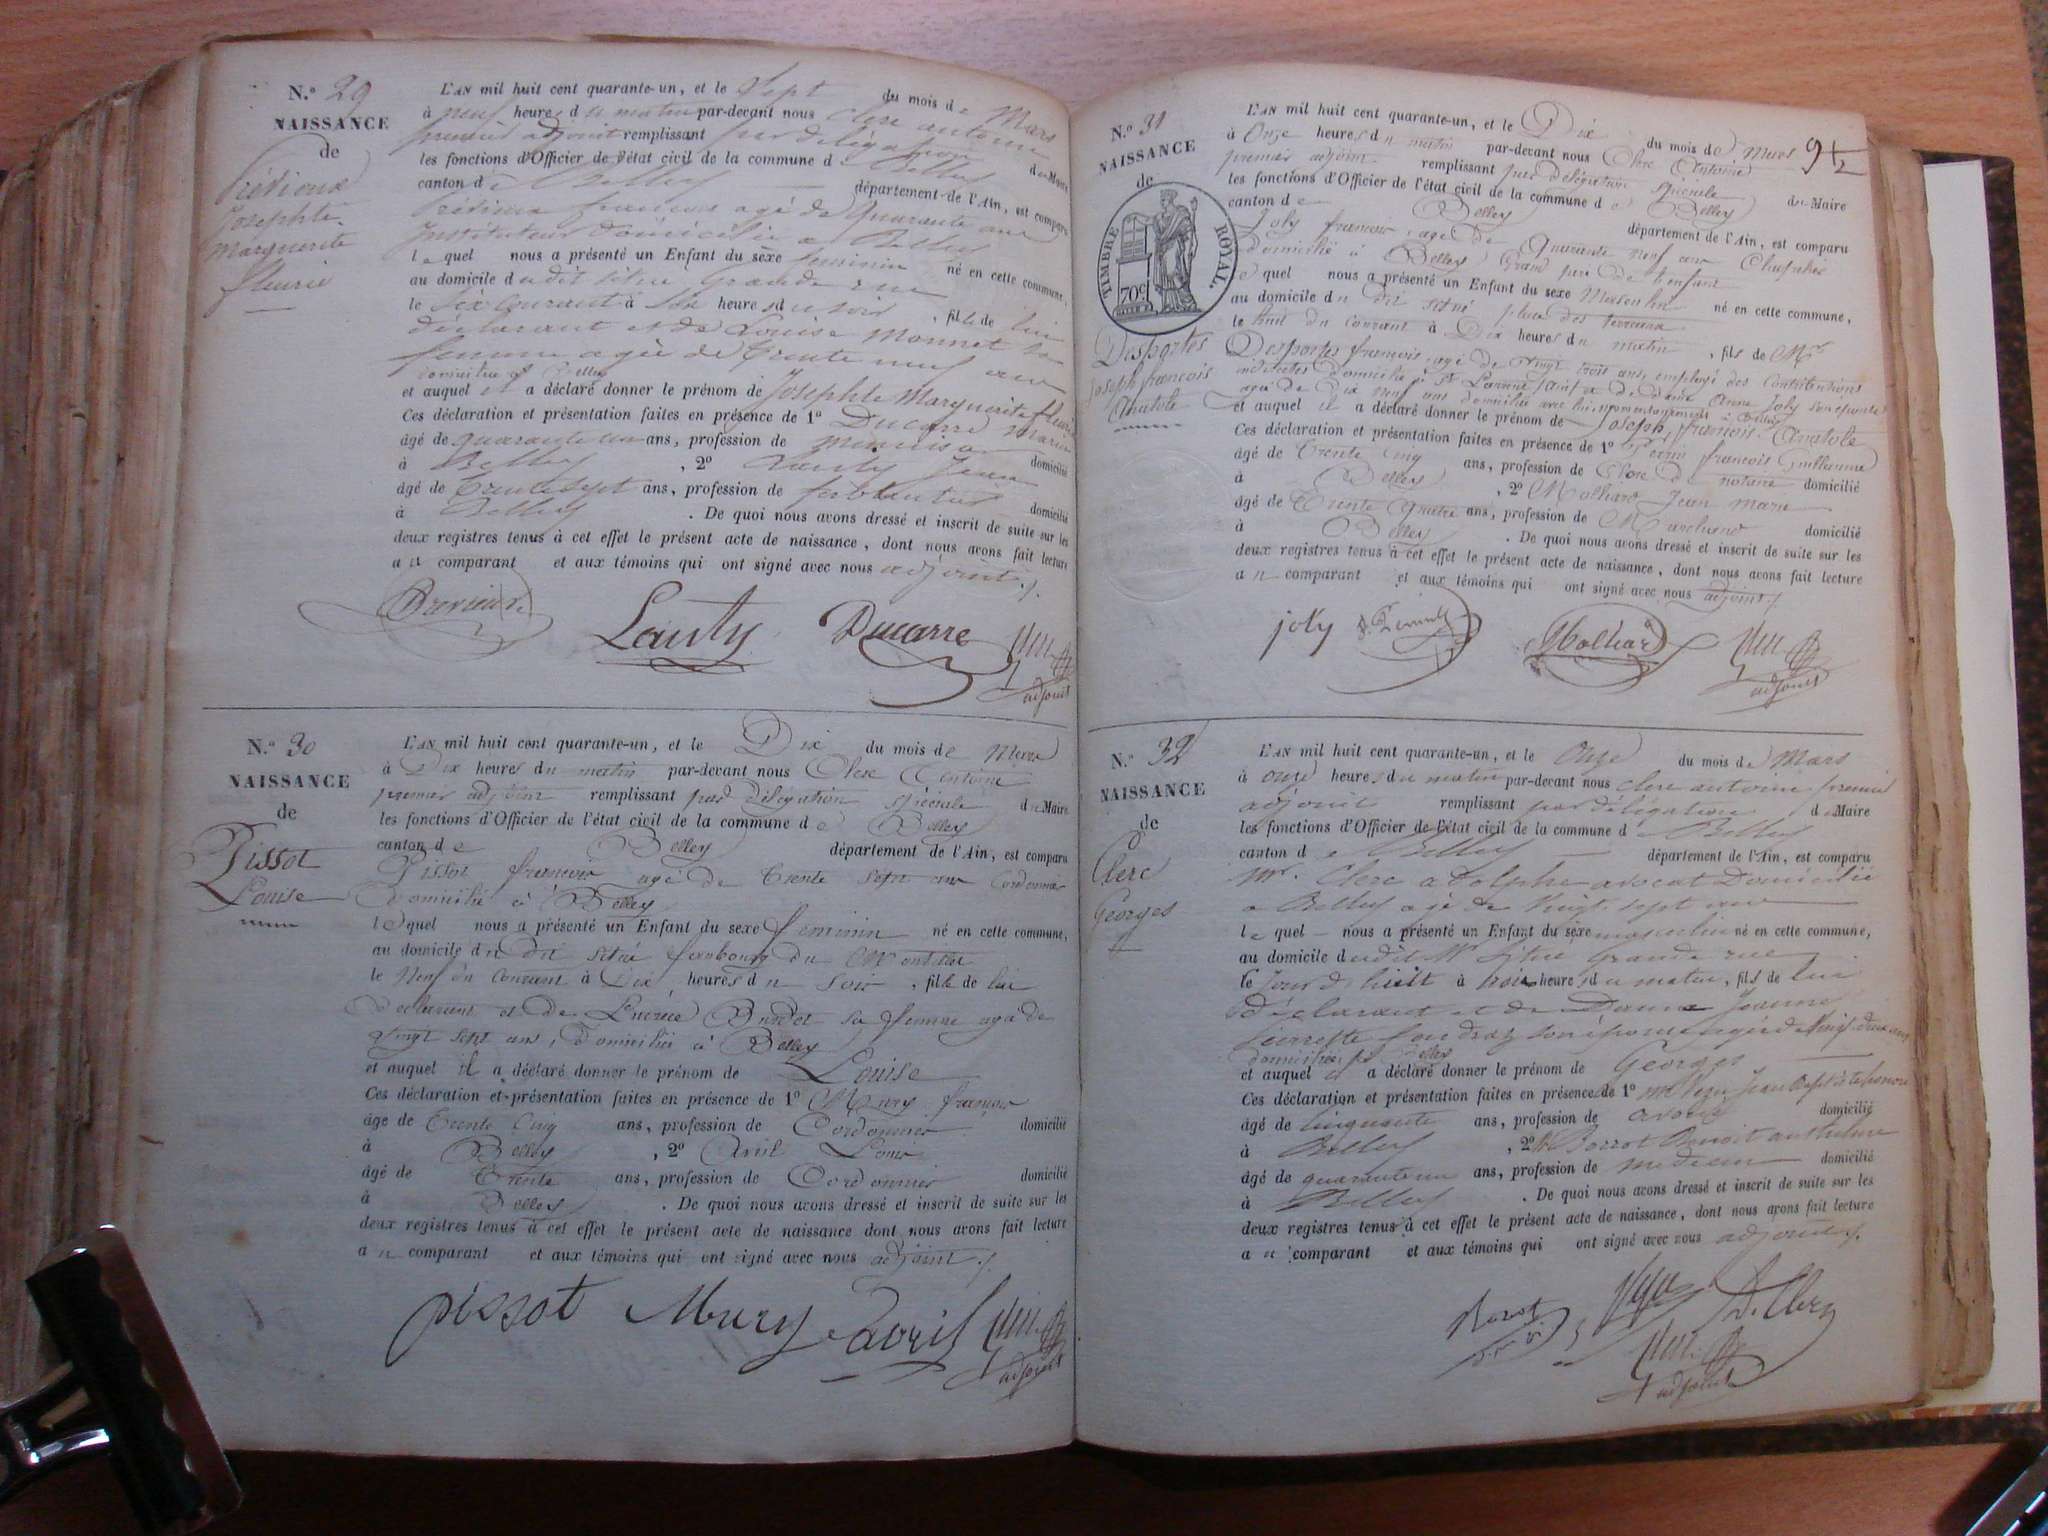 N.° 29
NAISSANCE
de
Josephte
Marguerite
fleurie
L'AN mil huit cent quarante-un, et le Sept du mois de Mars
à neuf heures du matin par-devant nous Clerc antoine
premier adjoint remplissant par délégation du Maire
les fonctions d'Officier de l'état civil de la commune de Belley
canton de Belley département de l'Ain, est comparu
françois agé de quarante ans
Instituteur domicilié a Belley
lequel nous a présenté un Enfant du sexe feminin né en cette commune,
au domicile dudit situé Grande rue
le six courant à six heures du soir, fille de lui
déclarant et de Louise Monnet sa
femme agée de trente neuf ans
domiciliée à Belley
et auquel il a déclaré donner le prénom de Josephte Marguerite fleurie
Ces déclaration et présentation faites en présence de 1° Ducarre Marin
âgé de quarante un ans, profession de menuisier domicilié
à Belley, 2° Lauty Jean
âgé de trente sept ans, profession de ferblantier domicilié
à Belley. De quoi nous avons dressé et inscrit de suite sur les
deux registres tenus à cet effet le présent acte de naissance, dont nous avons fait lecture
au comparant et aux témoins qui ont signé avec nous adjoint./.
Lauty Ducarre
adjoint
N.° 30
NAISSANCE
de
Pissot
Louise
L'AN mil huit cent quarante-un, et le Dix du mois de Mars
à Dix heures du matin par-devant nous Clerc Antoine
premier adjoint remplissant par délégation spéciale du Maire
les fonctions d'Officier de l'état civil de la commune de Belley
canton de Belley département de l'Ain, est comparu
Pissot françois agé de trente sept ans Cordonnier
Domicilié à Belley
lequel nous a présenté un Enfant du sexe feminin né en cette commune,
au domicile du dit situé faubourg du
le Neuf du Courant à Dix heures du soir, fille de lui
Déclarant et de Budet sa femme agée de
vingt sept ans, Domiciliée à Belley
et auquel il a déclaré donner le prénom de Louise
Ces déclaration et présentation faites en présence de 1° Mury françois
âgé de Trente Cinq ans, profession de Cordonnier domicilié
à Belley, 2° Avril Louis
âgé de Trente ans, profession de Cordonnier domicilié
à Belley. De quoi nous avons dressé et inscrit de suite sur les
deux registres tenus à cet effet le présent acte de naissance dont nous avons fait lecture
au comparant et aux témoins qui ont signé avec nous adjoint./.
pissot Mury avril
adjoint
N.° 31
NAISSANCE
de
TIMBRE ROYAL.
70c
Desportes
Joseph françois
Anatole
L'AN mil huit cent quarante-un, et le Dix du mois de Mars
à Onze heures du matin par-devant nous Clerc Antoine
premier adjoint remplissant par délégation spéciale du Maire
les fonctions d'Officier de l'état civil de la commune de Belley
canton de Belley département de l'Ain, est comparu
Joly françois agé de Quarante neuf ans
domicilié à Belley Grand père de l'enfant
lequel nous a présenté un Enfant du sexe Masculin né en cette commune,
au domicile du dit situé place des terreaux
le huit du courant à Dix heures du matin, fils de Mr
Desportes françois agé de vingt trois ans, employé des Contributions
indirectes domicilié à St et de Dame Anne Joly son épouse
agée de Dix neuf ans domiciliée avec lui, momentanément à Belley
et auquel il a déclaré donner le prénom de Joseph françois Anatole
Ces déclaration et présentation faites en présence de 1° françois Guillaume
âgé de trente cinq ans, profession de Clerc de notaire domicilié
à Belley, 2° Molliard Jean Marie
âgé de Trente Quatre ans, profession de Marchand domicilié
à Belley. De quoi nous avons dressé et inscrit de suite sur les
deux registres tenus à cet effet le présent acte de naissance, dont nous avons fait lecture
au comparant et aux témoins qui ont signé avec nous adjoint./.
joly Molliard
adjoint
N.° 32
NAISSANCE
de
Clerc
Georges
L'AN mil huit cent quarante-un, et le Onze du mois de Mars
à onze heures du matin par-devant nous Clerc antoine premier
adjoint remplissant par délégation du Maire
les fonctions d'Officier de l'état civil de la commune de Belley
canton de Belley département de l'Ain, est comparu
Mr. Clerc adolphe avocat Domicilié
a Belley agé de vingt sept ans
lequel nous a présenté un Enfant du sexe masculin né en cette commune,
au domicile dudit Mr situé Grande rue
le Jour d'hier à trois heures du matin, fils de lui
Déclarant et de Dame Jeanne
son épouse agée de vingt deux ans
domiciliée à Belley
et auquel il a déclaré donner le prénom de Georges
Ces déclaration et présentation faites en présence de 1° Mr Jean Baptiste
âgé de cinquante ans, profession de avoué domicilié
à Belley, 2° Mr Benoit
âgé de quarante un ans, profession de medecin domicilié
à Belley. De quoi nous avons dressé et inscrit de suite sur les
deux registres tenus à cet effet le présent acte de naissance, dont nous avons fait lecture
au comparant et aux témoins qui ont signé avec nous adjoint./.
A. Clerc
adjoint